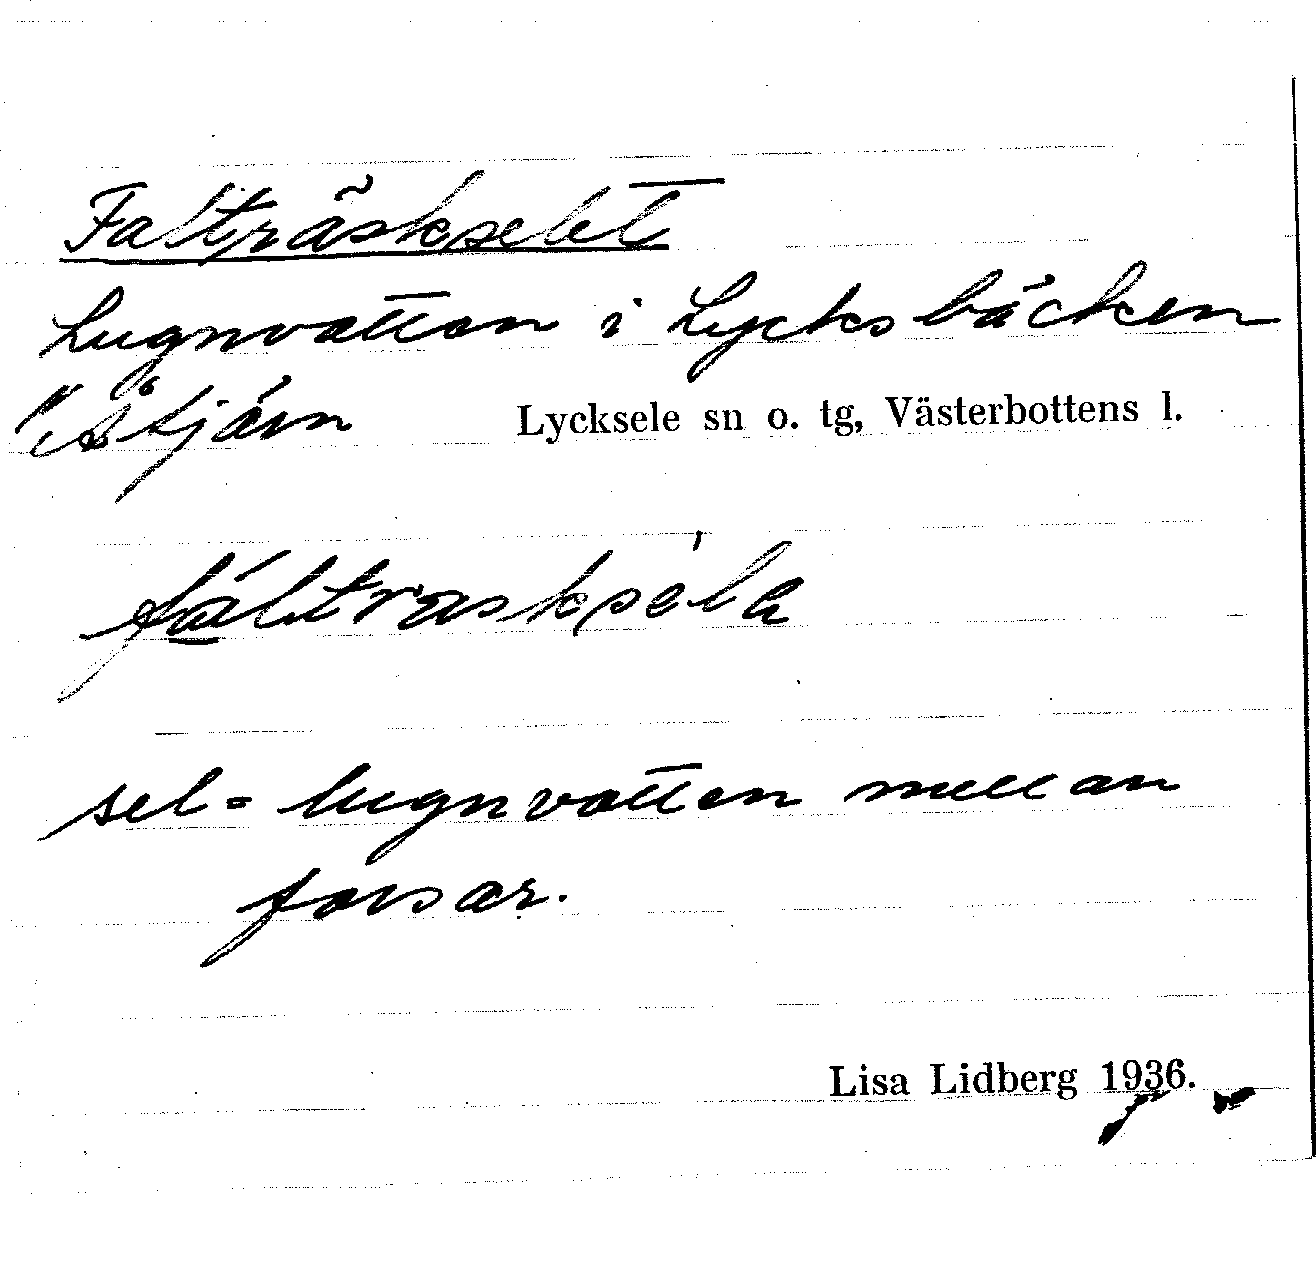 Falträskselet
Lugnvatten i Lycksbäcken
"Åtjärn Lycksele sn o. tg, Västerbottens l.
sel = lugnvatten mellan
forsar.
Lisa Lidberg 1936.